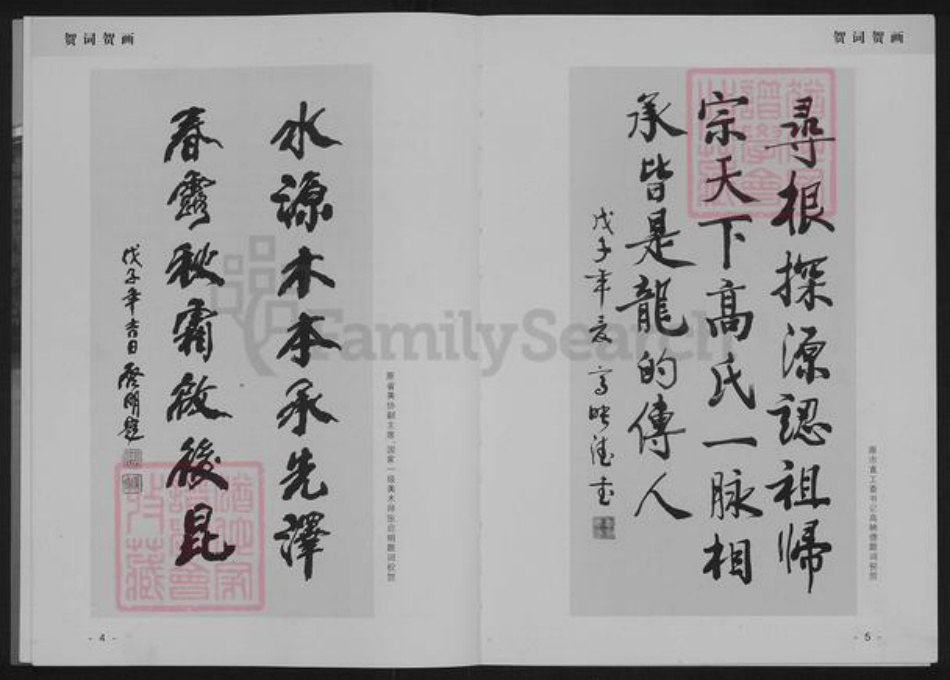 贺词贺画
水源木本承先澤
春露秋霜啟後昆
戊子年吉日啓明題
原省美协副主席、国家一级美术师张启明题词祝贺
- 4 -
贺词贺画
尋根探源認祖歸
宗天下高氏一脉相
承皆是龍的傳人
戊子年夏 高映德书
原市直工委书记高映德题词祝贺
- 5 -
FamilySearch